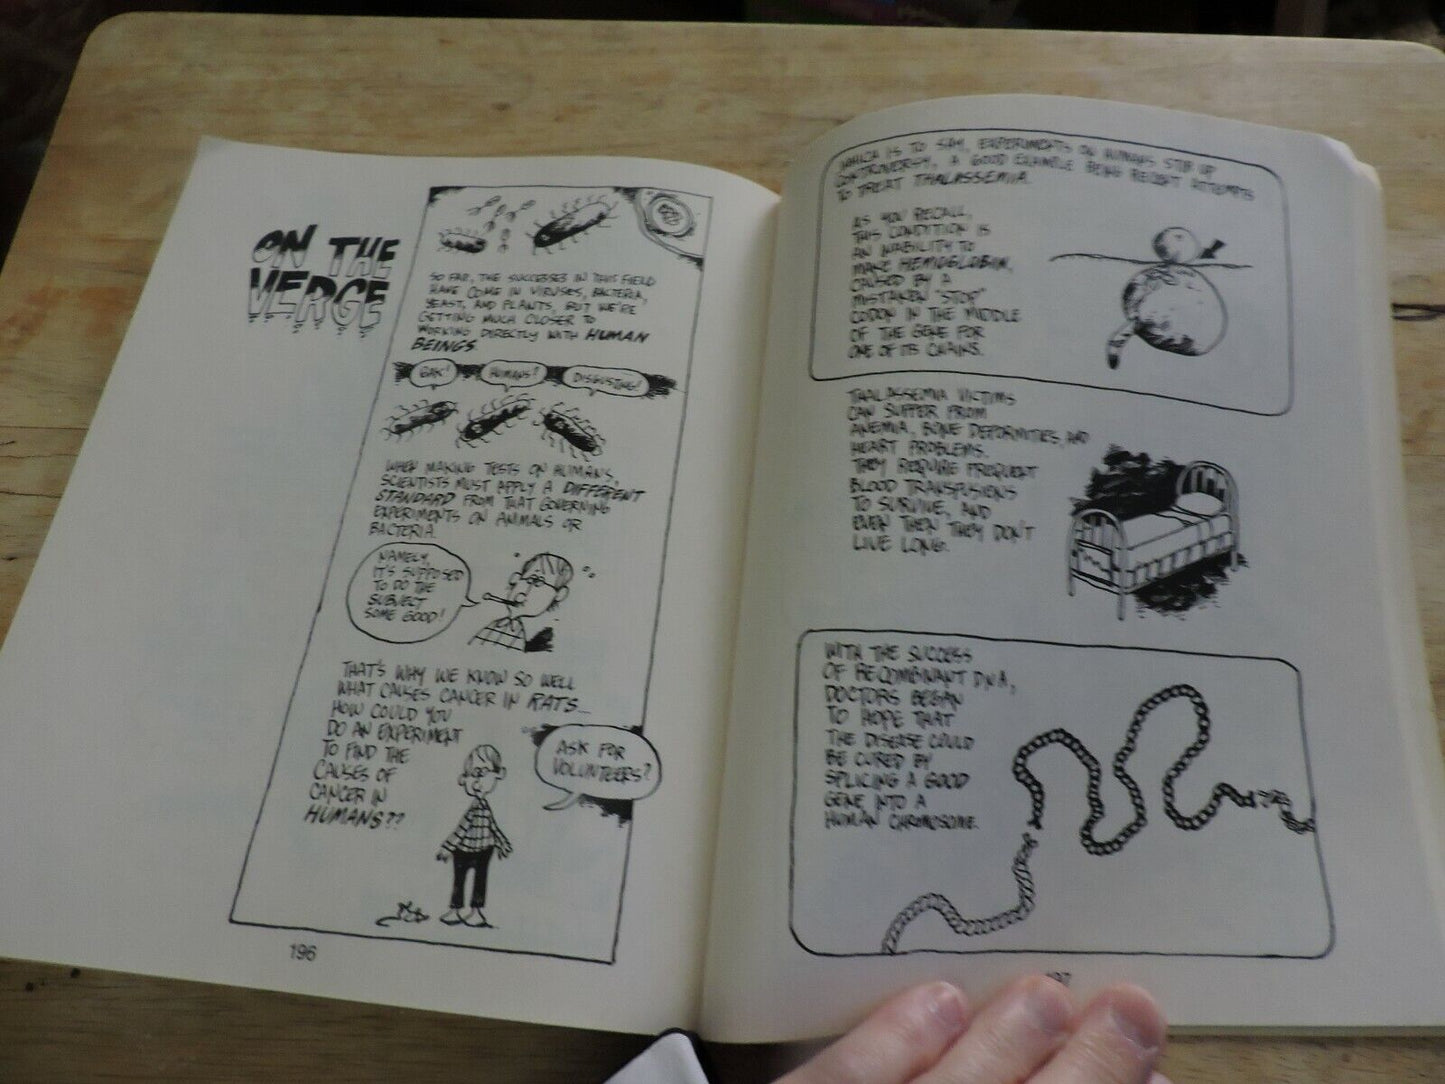 ON THE
VERGE
SO FAR, THE SUCCESSES IN THIS FIELD
HAVE COME IN VIRUSES, BACTERIA,
YEAST, AND PLANTS, BUT WE'RE
GETTING MUCH CLOSER TO
WORKING DIRECTLY WITH HUMAN
BEINGS
GAK!
HUMANS?
DISGUSTING!
WHEN MAKING TESTS ON HUMANS,
SCIENTISTS MUST APPLY A DIFFERENT
STANDARD FROM THAT GOVERNING
EXPERIMENTS ON ANIMALS OR
BACTERIA.
NAMELY,
IT'S SUPPOSED
TO DO THE
SUBJECT
SOME GOOD!
THAT'S WHY WE KNOW SO WELL
WHAT CAUSES CANCER IN RATS...
HOW COULD YOU
DO AN EXPERIMENT
TO FIND THE
CAUSES OF
CANCER IN
HUMANS??
ASK FOR
VOLUNTEERS?
196
WHICH IS TO SAY, EXPERIMENTS ON HUMANS STIR UP
CONTROVERSY, A GOOD EXAMPLE BEING RECENT ATTEMPTS
TO TREAT THALASSEMIA.
AS YOU RECALL,
THIS CONDITION IS
AN INABILITY TO
MAKE HEMOGLOBIN,
CAUSED BY A
MISTAKEN "STOP"
CODON IN THE MIDDLE
OF THE GENE FOR
ONE OF ITS CHAINS.
THALASSEMIA VICTIMS
CAN SUFFER FROM
ANEMIA, BONE DEFORMITIES, AND
HEART PROBLEMS.
THEY REQUIRE FREQUENT
BLOOD TRANSFUSIONS
TO SURVIVE, AND
EVEN THEN THEY DON'T
LIVE LONG.
WITH THE SUCCESS
OF RECOMBINANT DNA,
DOCTORS BEGAN
TO HOPE THAT
THE DISEASE COULD
BE CURED BY
SPLICING A GOOD
GENE INTO A
HUMAN CHROMOSOME.
197